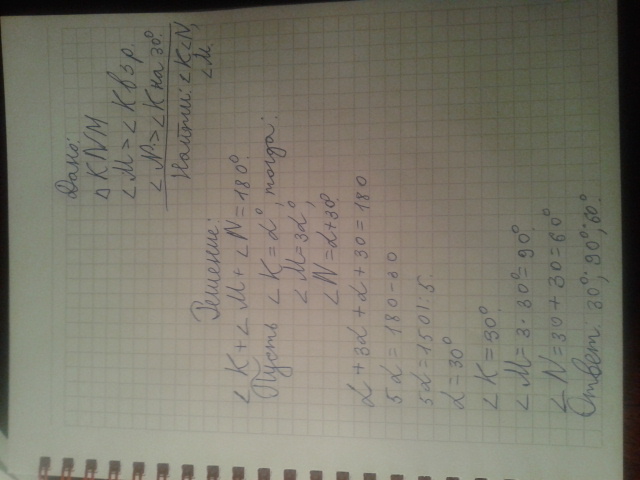 Дано:
△ KNM
∠M > ∠K в 3 р.
∠N > ∠K на 30°.
Найти: ∠K, ∠N,
∠M.
Решение:
∠K + ∠M + ∠N = 180°.
Пусть ∠K = α°, тогда:
∠M = 3α°,
∠N = α + 30°.
α + 3α + α + 30 = 180
5α = 180 - 30
5α = 150 | : 5.
α = 30°
∠K = 30°.
∠M = 3 · 30° = 90°.
∠N = 30 + 30 = 60°
Ответ: 30°; 90°; 60°.